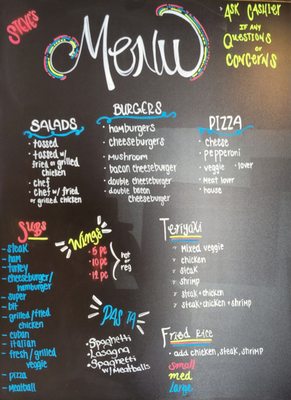 STEVE'S
MENU
ASK CASHIER
IF ANY
QUESTIONS
OR
CONCERNS
SALADS
• tossed
• tossed w/
fried or grilled
chicken
• chef
• chef w/ fried
or grilled chicken
BURGERS
• hamburgers
• cheeseburgers
• mushroom
• bacon cheeseburger
• double cheeseburger
• double bacon
cheeseburger
PIZZA
• cheese
• pepperoni
• veggie lover
• Meat lover
• house
Subs
- steak
- ham
- turkey
- cheeseburger/
hamburger
- super
- blt
- grilled/fried
chicken
- cuban
- italian
- fresh/grilled
veggie
- pizza
- meatball
Wings
• 5 pc
• 10 pc
• 15 pc
hot
or
reg
PASTA
• Spaghetti
• Lasagna
• Spaghetti
w/ Meatballs
Teriyaki
Mixed veggie
chicken
steak
shrimp
steak + chicken
steak + chicken + shrimp
Fried Rice
• add chicken, steak, shrimp
small
med
large